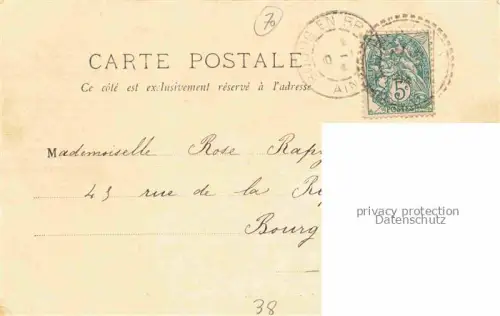 70
CARTE POSTALE
Ce côté est exclusivement réservé à l'adresse
5c
POSTES
AIN
Mademoiselle Rose
43 rue de la
Bourg
privacy protection
Datenschutz
38